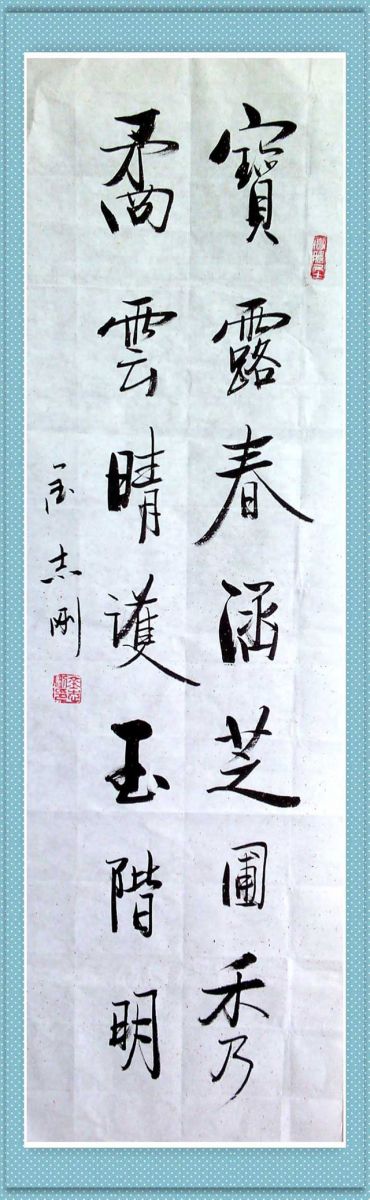 寶露春涵芝圃秀
矞雲晴護玉階明
志剛